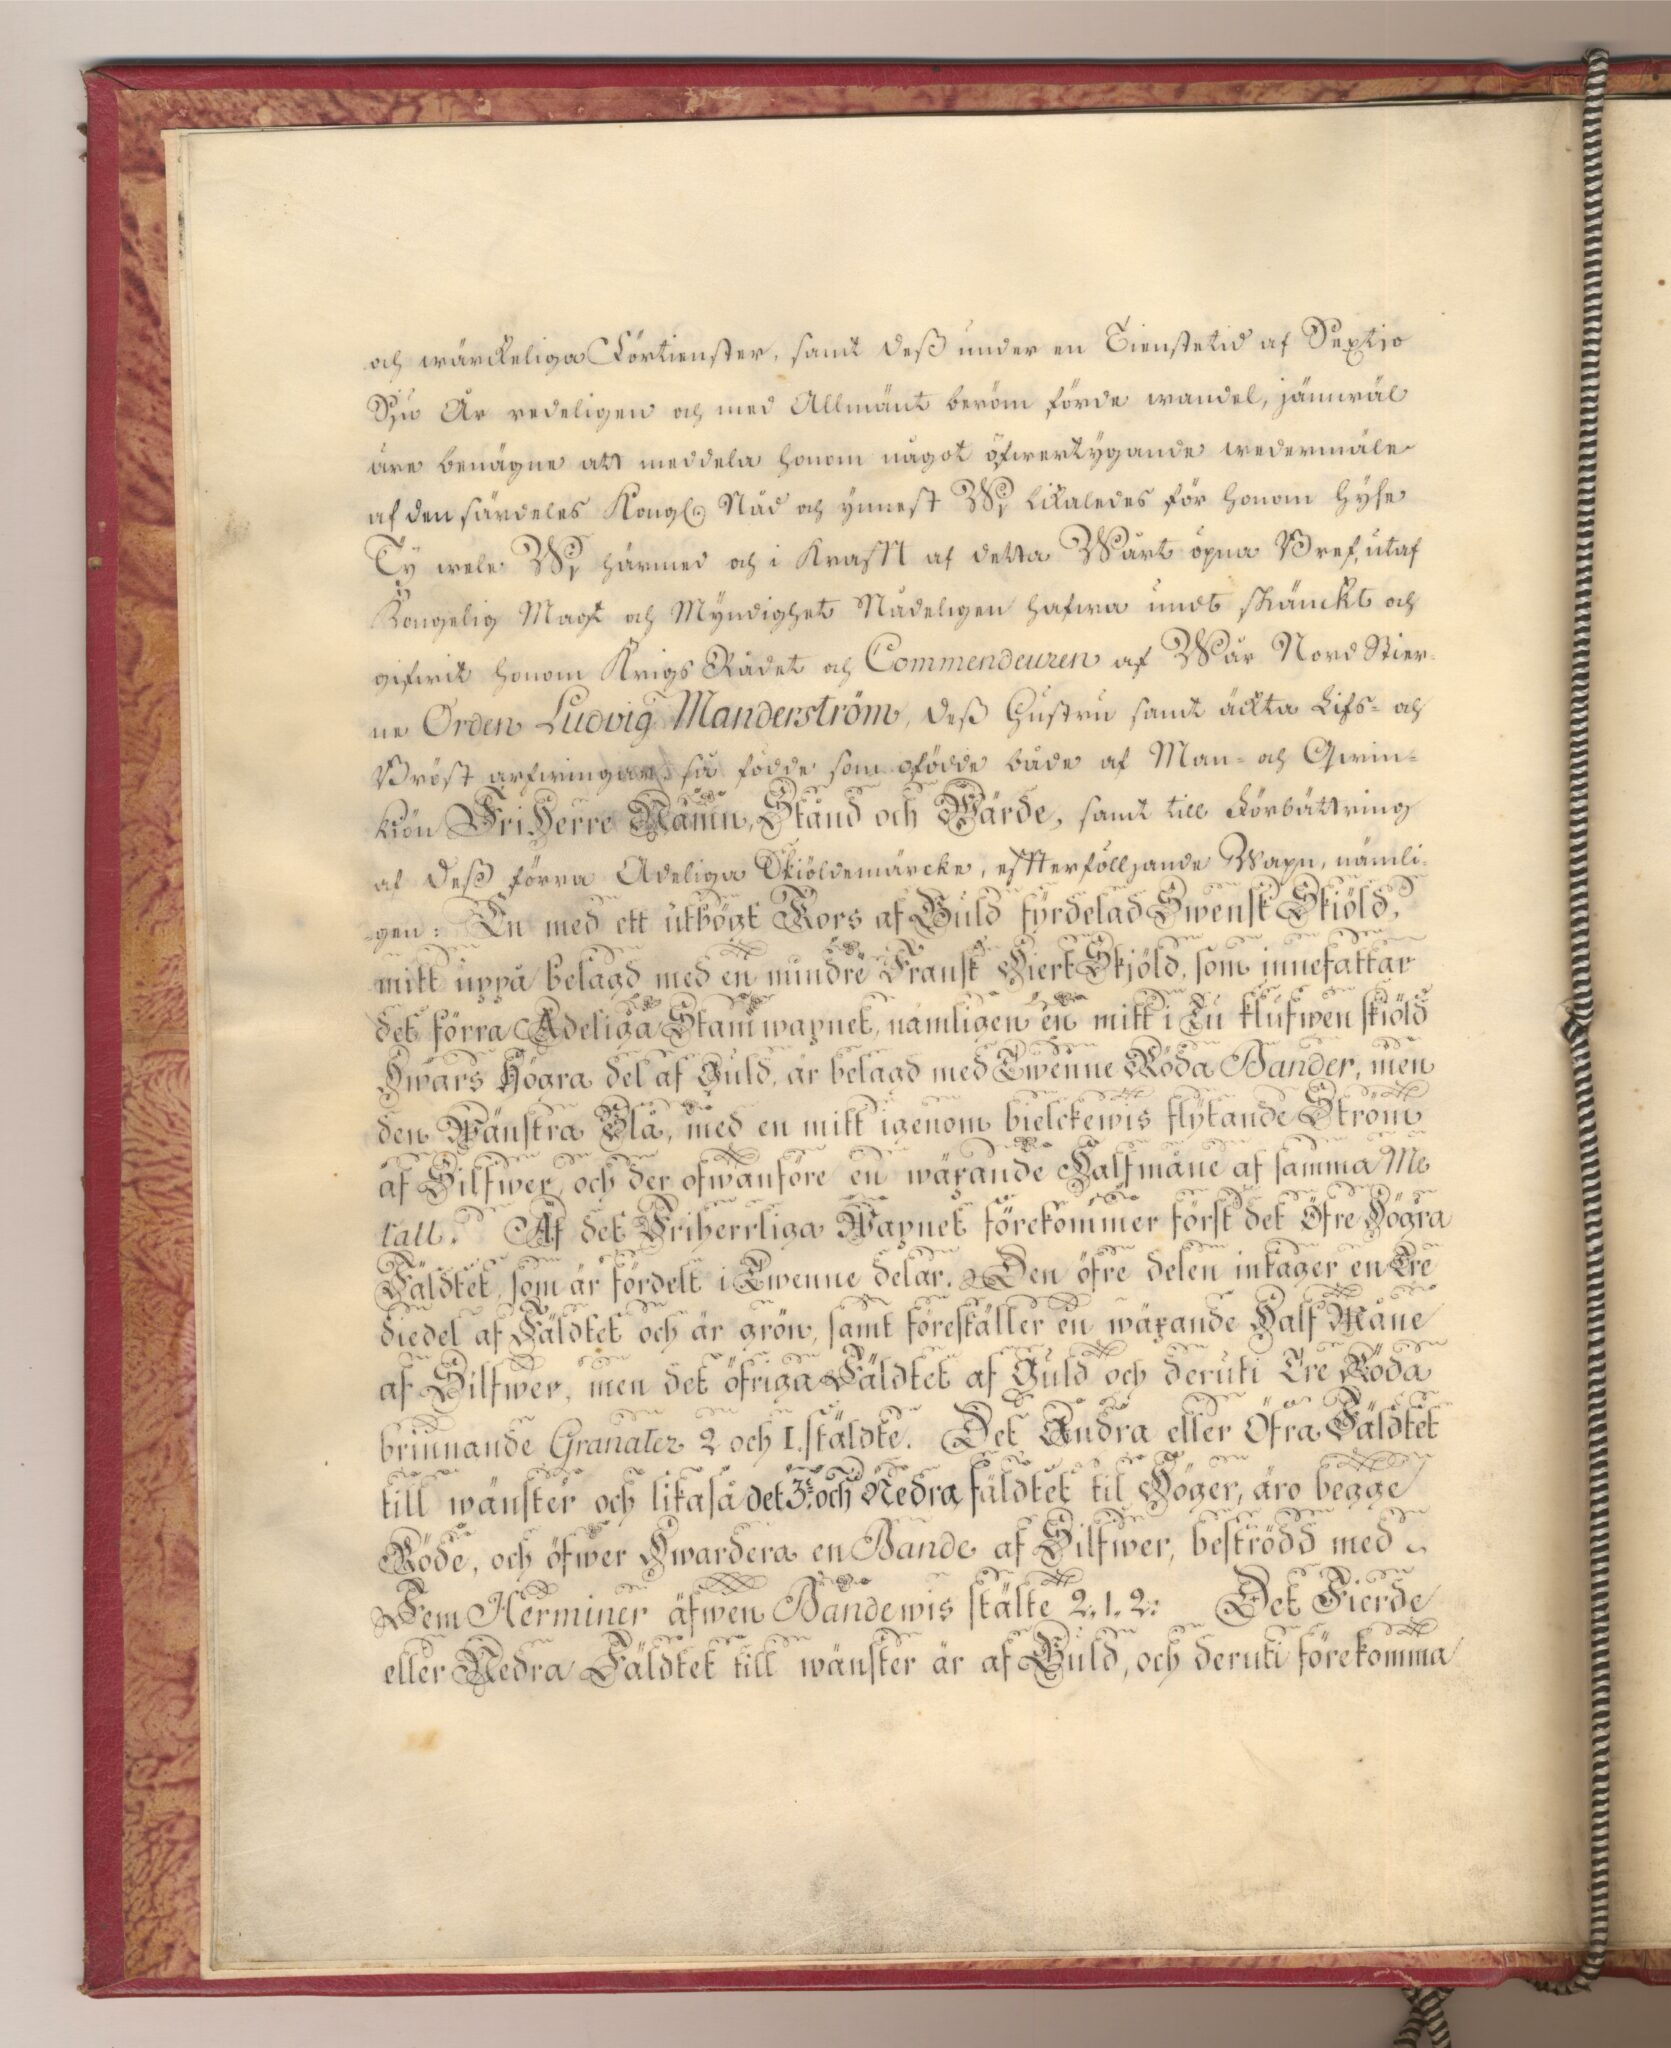 och wärckeliga Förtienster, samt deß under en Tienstetid af Sextio
Siu År redeligen och med Allmänt beröm förde wandel, jämwäl
äre benägne att meddela honom något öfwertygande wedermäle
af den särdeles Kongl. Nåd och ynnest Wi likaledes för honom hyse
Ty wele Wi härmed och i Krafft af detta Wårt öpna Bref, utaf
Kongelig Magt och Myndighet Nådeligen hafwa undt skänckt och
gifwit honom Krigs Rådet och Commendeuren af Wår Nord Stier-
ne Orden Ludvig Manderström, deß Hustru samt äckta Lifs- och
Bröst arfwingar, så födde som ofödde både af Man- och Qwin-
kiön FriHerre Namn, Stånd och Wärde, samt till Förbättring
af deß förra Adeliga Skiöldemärcke, effterfölljande Wapn, nämli-
-gen: En med ett utbögt Kors af Guld fyrdelad Swensk Skiöld,
mitt uppå belagd med en mindre Fransk Hiert Skjöld, som innefattar
det förra Adeliga Stamwapnet, nämligen en mitt i Tu klufwen skiöld
Hwars Högra del af Guld, är belagd med Twenne Röda Bander, men
den Wänstra Blå, med en mitt igenom bielckewis flytande Ström
af Silfwer, och der ofwanföre en wäxande Halfmåne af samma Me
tall. Af det Friherrliga Wapnet förekommer först det Öfre Högra
Fäldtet, som är fördelt i Twenne delar. Den öfre delen intager en Tre
diedel af Fäldtet och är grön, samt föreställer en wäxande Half Måne
af Silfwer, men det öfriga Fäldtet af Guld och deruti Tre Röda
brinnande Granater 2 och 1. stäldte. Det Andra eller Öfra Fäldtet
till wänster och likaså det 3: och Nedra fäldtet til Höger, äro begge
Röde, och öfwer Hwardera en Bande af Silfwer, beströdd med
Fem Herminer äfwen Bandewis stälte 2. 1. 2: Det Fierde
eller Nedra Fäldtet till wänster är af Guld, och deruti förekomma